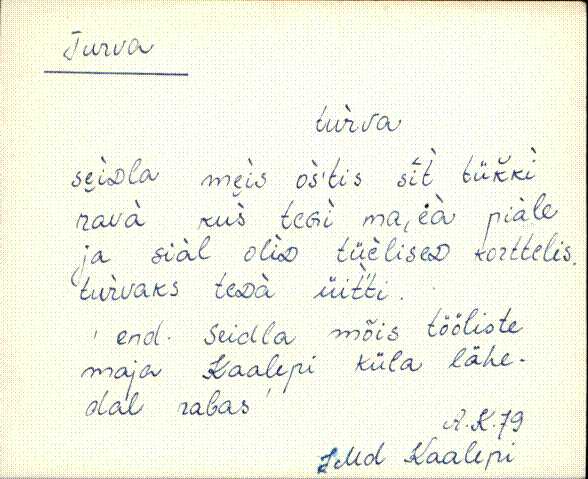 Turva
turva
sei̮Dla mei̮s oš́tis sìt̀ tük̆kì
ravà kuš̀ teGì ma͕èà piàle
ja siàl olìD tüèliseD korttelis.
turvaks teDà üit̀ti.
' end. Seidla mõis tööliste
maja Kaalepi küla lähe-
dal rabas '
A.K.79
JMd Kaalepi